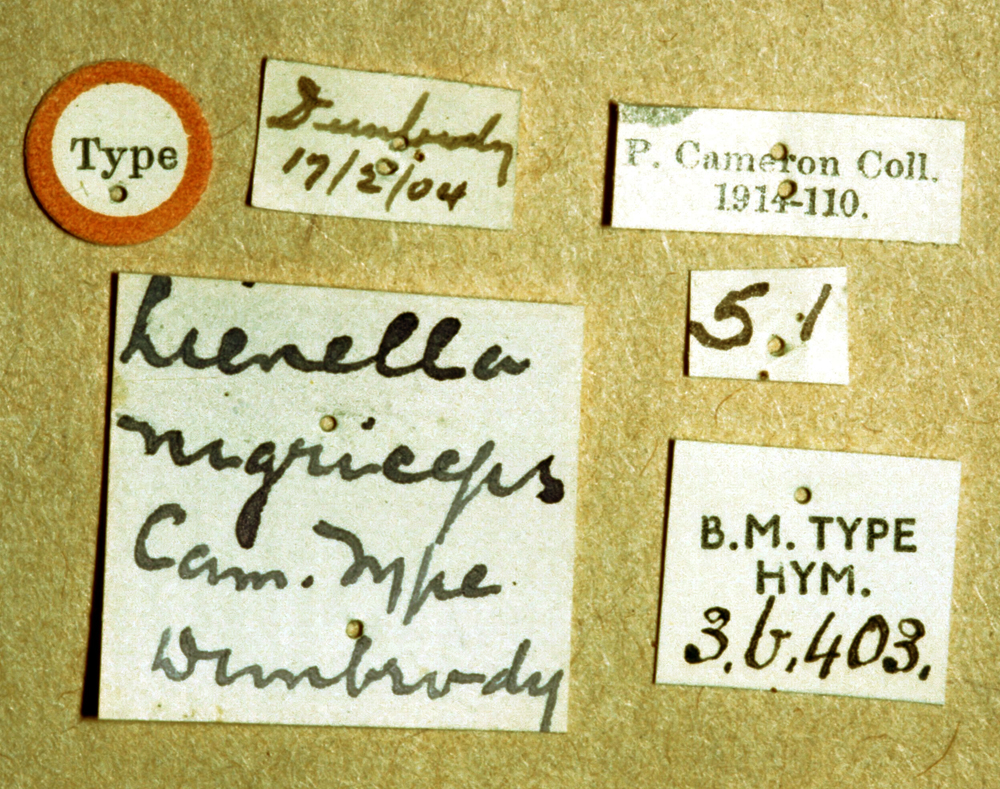 Type
Dunbrody
17/2/04
P. Cameron Coll.
1914-110.
5.1
Lienella
nigriceps
Cam. Type
Dunbrody
B.M. TYPE
HYM.
3.b.403.